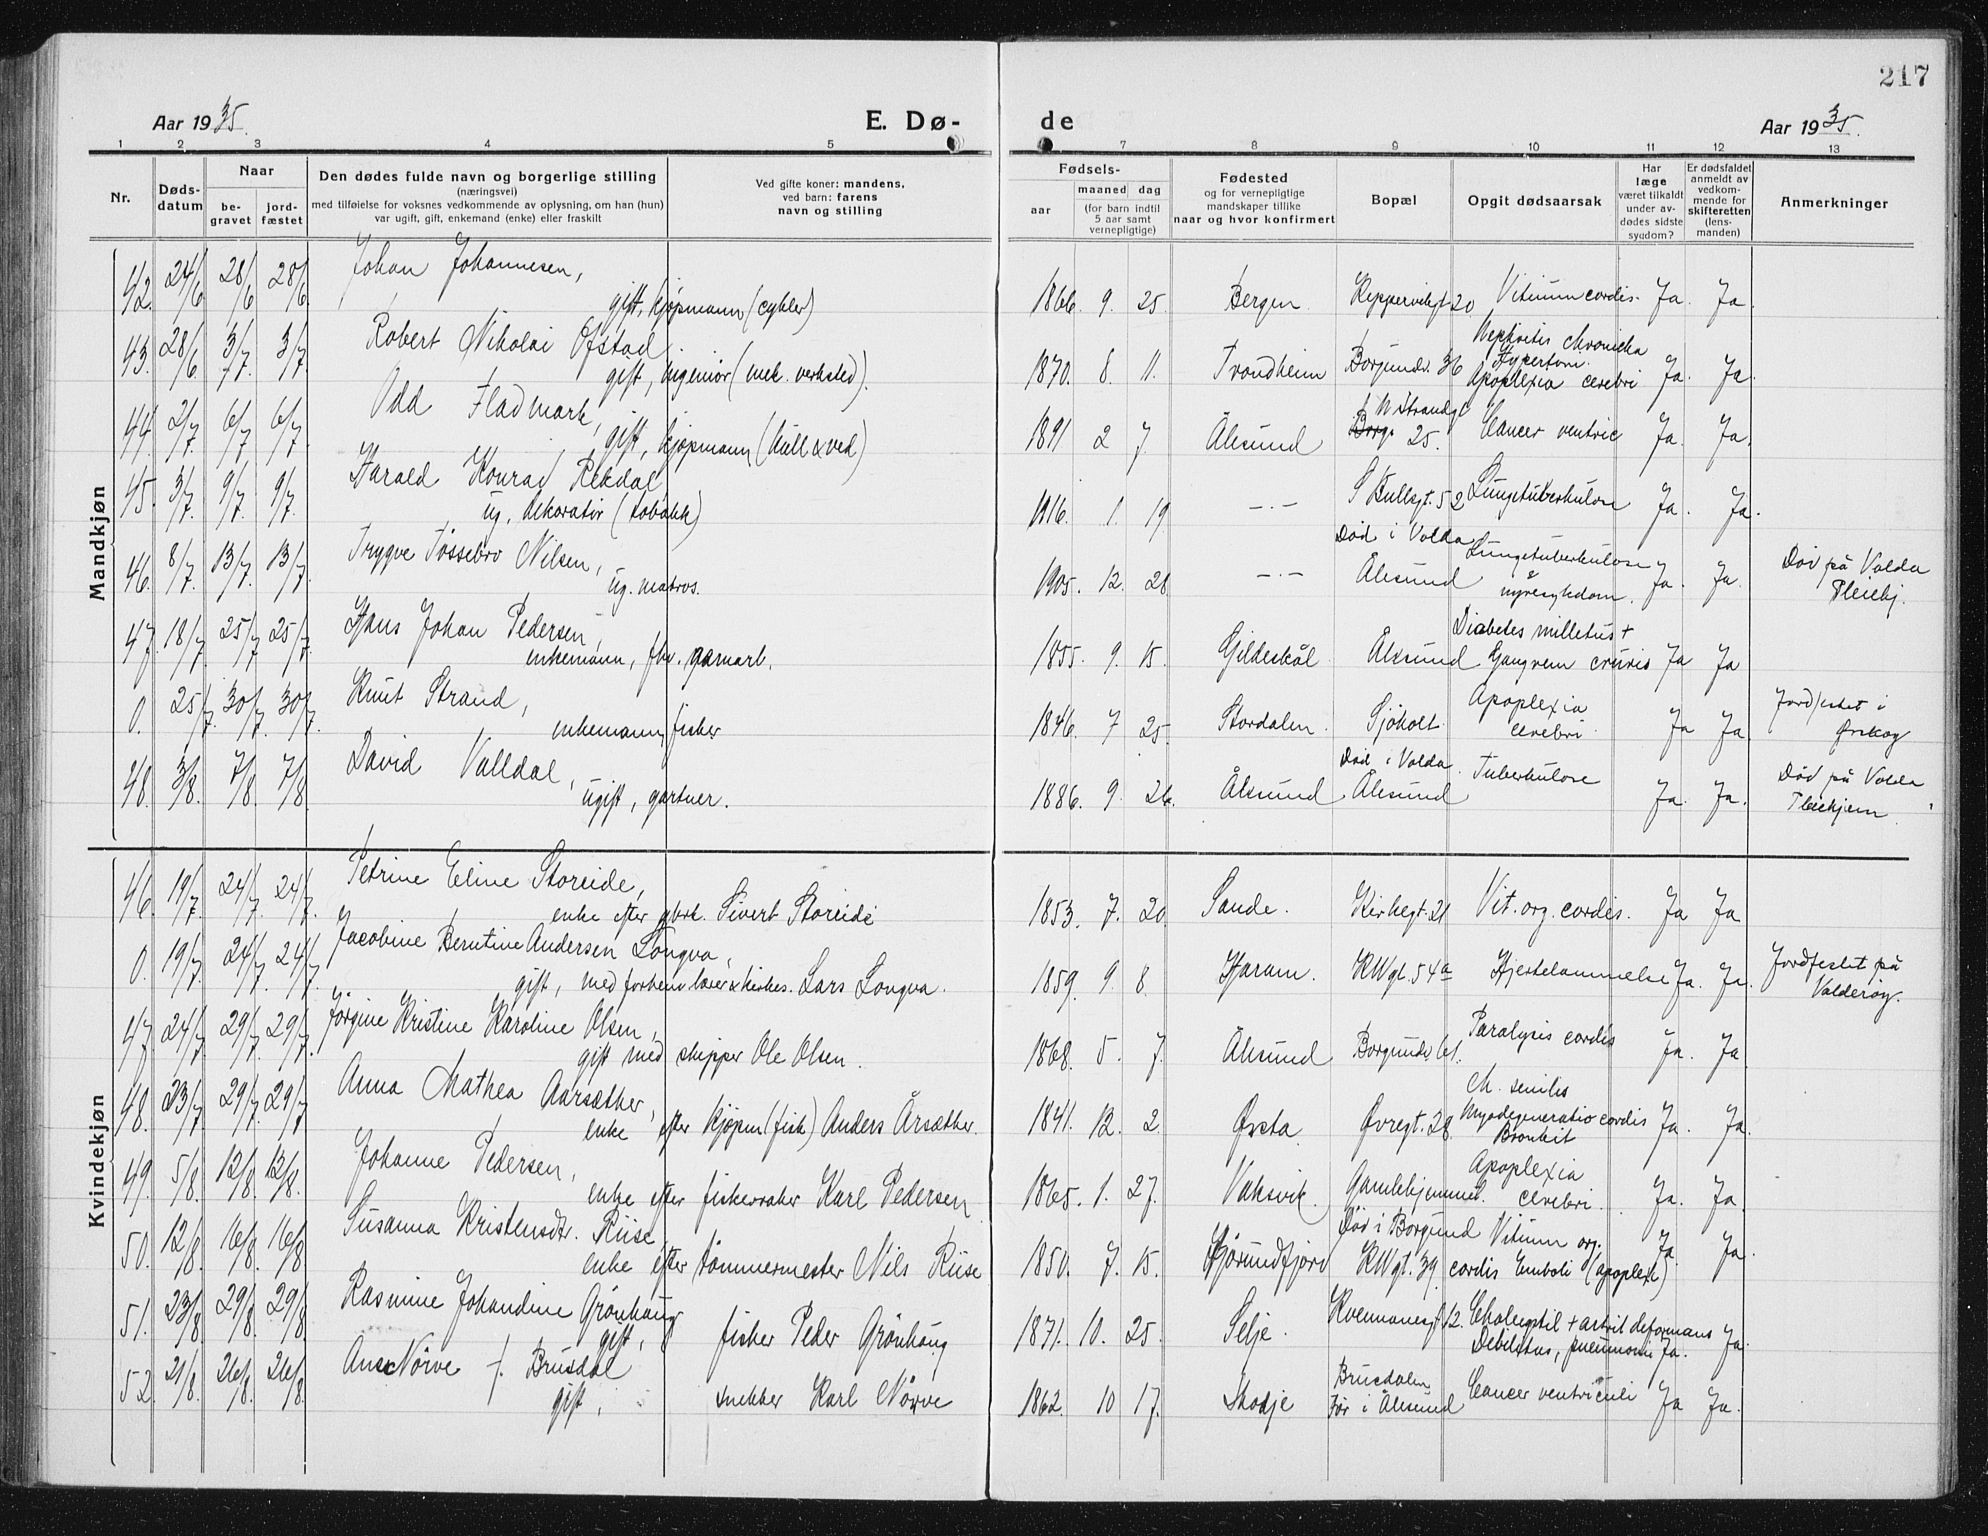 217
Aar 1935.
E. Dø-
de
Aar 1935.
1 2 3 4 5 7 8 9 10 11 12 13
Nr.
Døds-
datum
Naar
be-
gravet
jord-
fæstet
Den dødes fulde navn og borgerlige stilling
(næringsvei)
med tilføielse for voksnes vedkommende av oplysning, om han (hun)
var ugift, gift, enkemand (enke) eller fraskilt
Ved gifte koner: mandens,
ved barn: farens
navn og stilling
Fødsels-
aar
maaned dag
(for barn indtil
5 aar samt
vernepligtige)
Fødested
og for vernepligtige
mandskaper tillike
naar og hvor konfirmert
Bopæl
Opgit dødsaarsak
Har
læge
været tilkaldt
under av-
dødes sidste
sygdom?
Er dødsfaldet
anmeldt av
vedkom-
mende for
skifteretten
(lens-
manden)
Anmerkninger
Mandkjøn
42. 24/6 28/6 28/6. Johan Johannesen,
gift, kjøpmann (cykler)
1866. 9. 25. Bergen 20 Vitium cordis. Ja. Ja.
43. 28/6 3/7. 3/7. Robert Nikolai Ofstad
gift, ingeniør (mek. verksted).
1870. 8. 11. Trondheim Borgundv. 36 Nephritis chronicka
Hypertoni.
Apoplexia cerebri Ja. Ja.
44. 2/7. 6/7 6/7 Odd Fladmark,
gift, kjøpmann (kull & ved)
1891 2 7. Ålesund N Strandgt
25. Cancer ventric Ja. Ja.
45. 3/7. 9/7. 9/7. Harald Konrad Rekdal
ug. dekoratør (tobakk)
1916. 1. 19 —.— S Bullsgt. 52 Lungetuberkulose Ja. Ja.
46. 8/7. 13/7. 13/7. Trygve Tøssebro Nilsen,
ug. matros.
1905. 12. 28 —.— Død i Volda
Ålesund Lungetuberkulose
nyresykdom. Ja. Ja. Død på Volda
Pleiehj.
47. 18/7 25/7 25/7. Hans Johan Pedersen,
enkemann, fhv. garnarb.
1855. 9. 15. Gildeskål Ålesund Diabetes milletus +
Gangren cruris Ja Ja
0. 25/7. 30/7. 30/7. Knut Strand,
enkemann, fisker
1846. 7 25. Stordalen. Sjøholt. Apoplexia
cerebri Ja Ja. Jordfestet i
Ørskog
48. 3/8. 7/8. 7/8. David Valldal,
ugift, gartner.
1886. 9. 26. Ålesund Død i Volda.
Ålesund Tuberkulose Ja. Ja. Død på Volda
Pleiehjem
Kvindekjøn
46. 19/7. 24/7. 24/7. Petrine Eline Storeide,
enke efter gbrk. Sivert Storeide
1853. 7. 20. Sande. Kirkegt. 21 Vit. org. cordis. Ja Ja
0. 19/7. 24/7. 24/7. Jacobine Berntine Andersen Longva,
gift, med forhenv. lærer & kirkes. Lars Longva.
1859. 9. 8. Haram. KWgt. 54a Hjertelammelse Ja. Ja. Jordfestet på
Valderøy.
47 24/7. 29/7. 29/7. Jørgine Kristine Karoline Olsen,
gift med skipper Ole Olsen.
1868. 5. 7. Ålesund Borgundv. 61. Paralysis cordis Ja. Ja.
48. 23/7 29/7. 29/7 Anna Mathea Aarsæther,
enke efter kjøpm (fisk) Anders Årsæther.
1841. 12. 2. Ørsta Øvregt. 28. senilis
Myodegeneratio cordis
Bronkit Ja. Ja.
49. 5/8. 12/8. 12/8. Johanne Pedersen,
enke efter fiskevraker Karl Pedersen
1865. 1. 27. Vaksvik. Gamlehjemmet. Apoplexia
cerebri. Ja. Ja.
50. 12/8. 16/8. 16/8. Susanna Kristensdtr. Riise
enke efter tømmermester Nils Riise
1850. 7. 15. Hjørundfjord Død i Borgund
KWgt. 39 Vitium org.
cordis Emboli (apoplexi) Ja. Ja.
51. 23/8. 29/8. 29/8. Rasmine Johandine Grønhaug
gift, fisker Peder Grønhaug
1871. 10. 25. Selje. 12. + artrit deformans
Debilitas, pneumoni Ja. Ja.
52. 21/8. 26/8. 26/8. Ane Nørve f. Brusdal
gift, snekker Karl Nørve
1862. 10 17. Skodje Brusdalen
Før i Ålesund Cancer ventriculi Ja Ja.